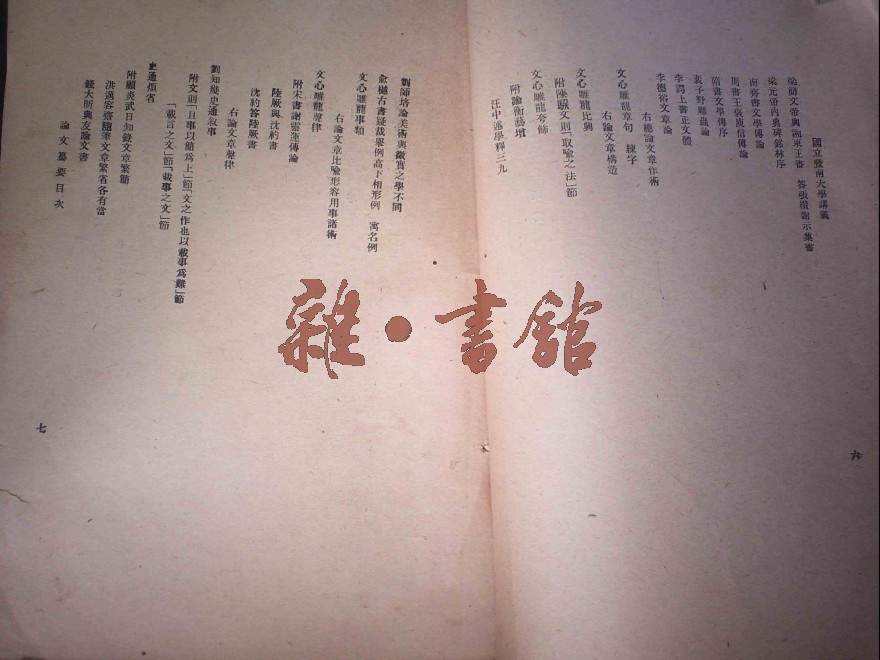 國立暨南大學講義
梁簡文帝與湘東王書　答張纘謝示集書
梁元帝內典碑銘林序
南齊書文學傳論
周書王褒庾信傳論
隋書文學傳序
裴子野雕蟲論
李諤上書正文體
李德裕文章論
右總論文章作術
文心雕龍章句　練字
右論文章構造
文心雕龍比興
附陳騤文則「取喩之法」節
文心雕龍夸飾
附論衡藝增
汪中述學釋三九
六
劉師培論美術與徵實之學不同
兪樾古書疑義舉例高下相形例　寓名例
文心雕龍事類
右論文章比喩形容用事諸術
文心雕龍聲律
附宋書謝靈運傳論
陸厥與沈約書
沈約答陸厥書
右論文章聲律
劉知幾史通敘事
附文則「且事以簡爲上」節「文之作也以載事爲難」節
「載言之文」節「載事之文」節
史通煩省
附顧炎武日知錄文章繁簡
洪邁容齋隨筆文章繁省各有當
錢大昕與友論文書
論文纂要目次
七
雜·書館